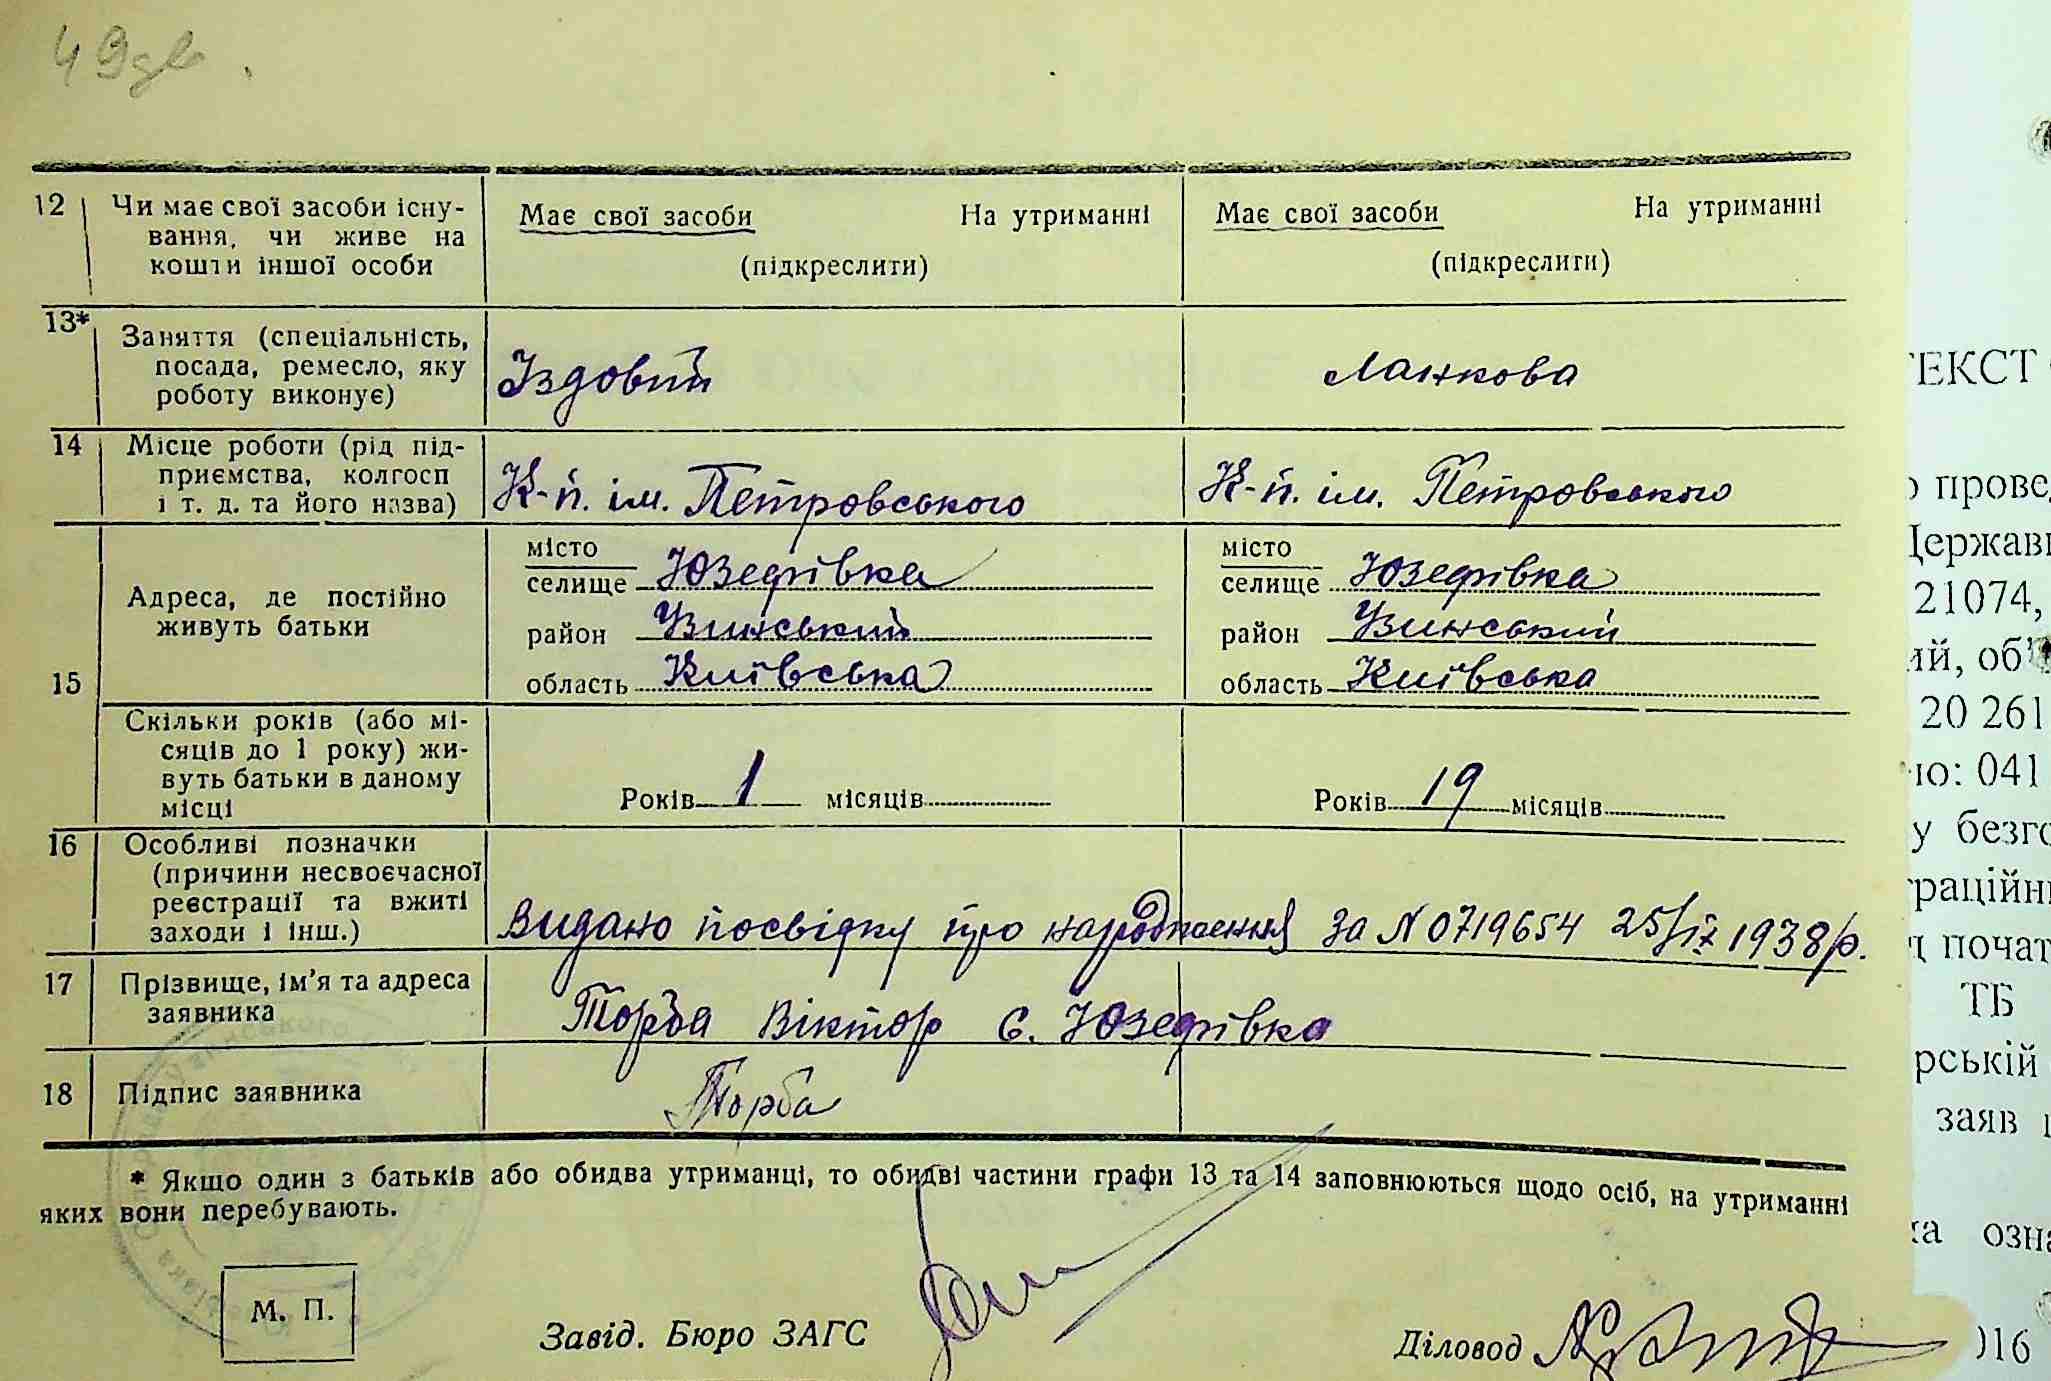 49 зв.
12 Чи має свої засоби існу-
вання, чи живе на
кошти іншої особи
Має свої засоби На утриманні
(підкреслити)
Має свої засоби На утриманні
(підкреслити)
13* Заняття (спеціальність,
посада, ремесло, яку
роботу виконує)
Їздовий
Ланкова
14 Місце роботи (рід під-
приємства, колгосп
і т. д. та його назва)
К-п. ім. Петровського
К-п. ім. Петровського
15
Адреса, де постійно
живуть батьки
місто
селище Юзефівка
район Узинський
область Київська
місто
селище Юзефівка
район Узинський
область Київська
Скільки років (або мі-
сяців до 1 року) жи-
вуть батьки в даному
місці
Років 1 місяців
Років 19 місяців
16 Особливі позначки
(причини несвоєчасної
реєстрації та вжиті
заходи і інш.)
Видано посвідку про народження за N 0719654 25/IX 1938 р.
17 Прізвище, ім'я та адреса
заявника
Торба Віктор с. Юзефівка
18 Підпис заявника
Торба
* Якщо один з батьків або обидва утриманці, то обидві частини графи 13 та 14 заповнюються щодо осіб, на утриманні
яких вони перебувають.
М. П.
Завід. Бюро ЗАГС
Діловод
ТЕКСТ
прове
Держав
21074,
ий, об'
20 261
но: 041
у безго
раційн
почат
ТБ
рській
заяв
ка озна
016